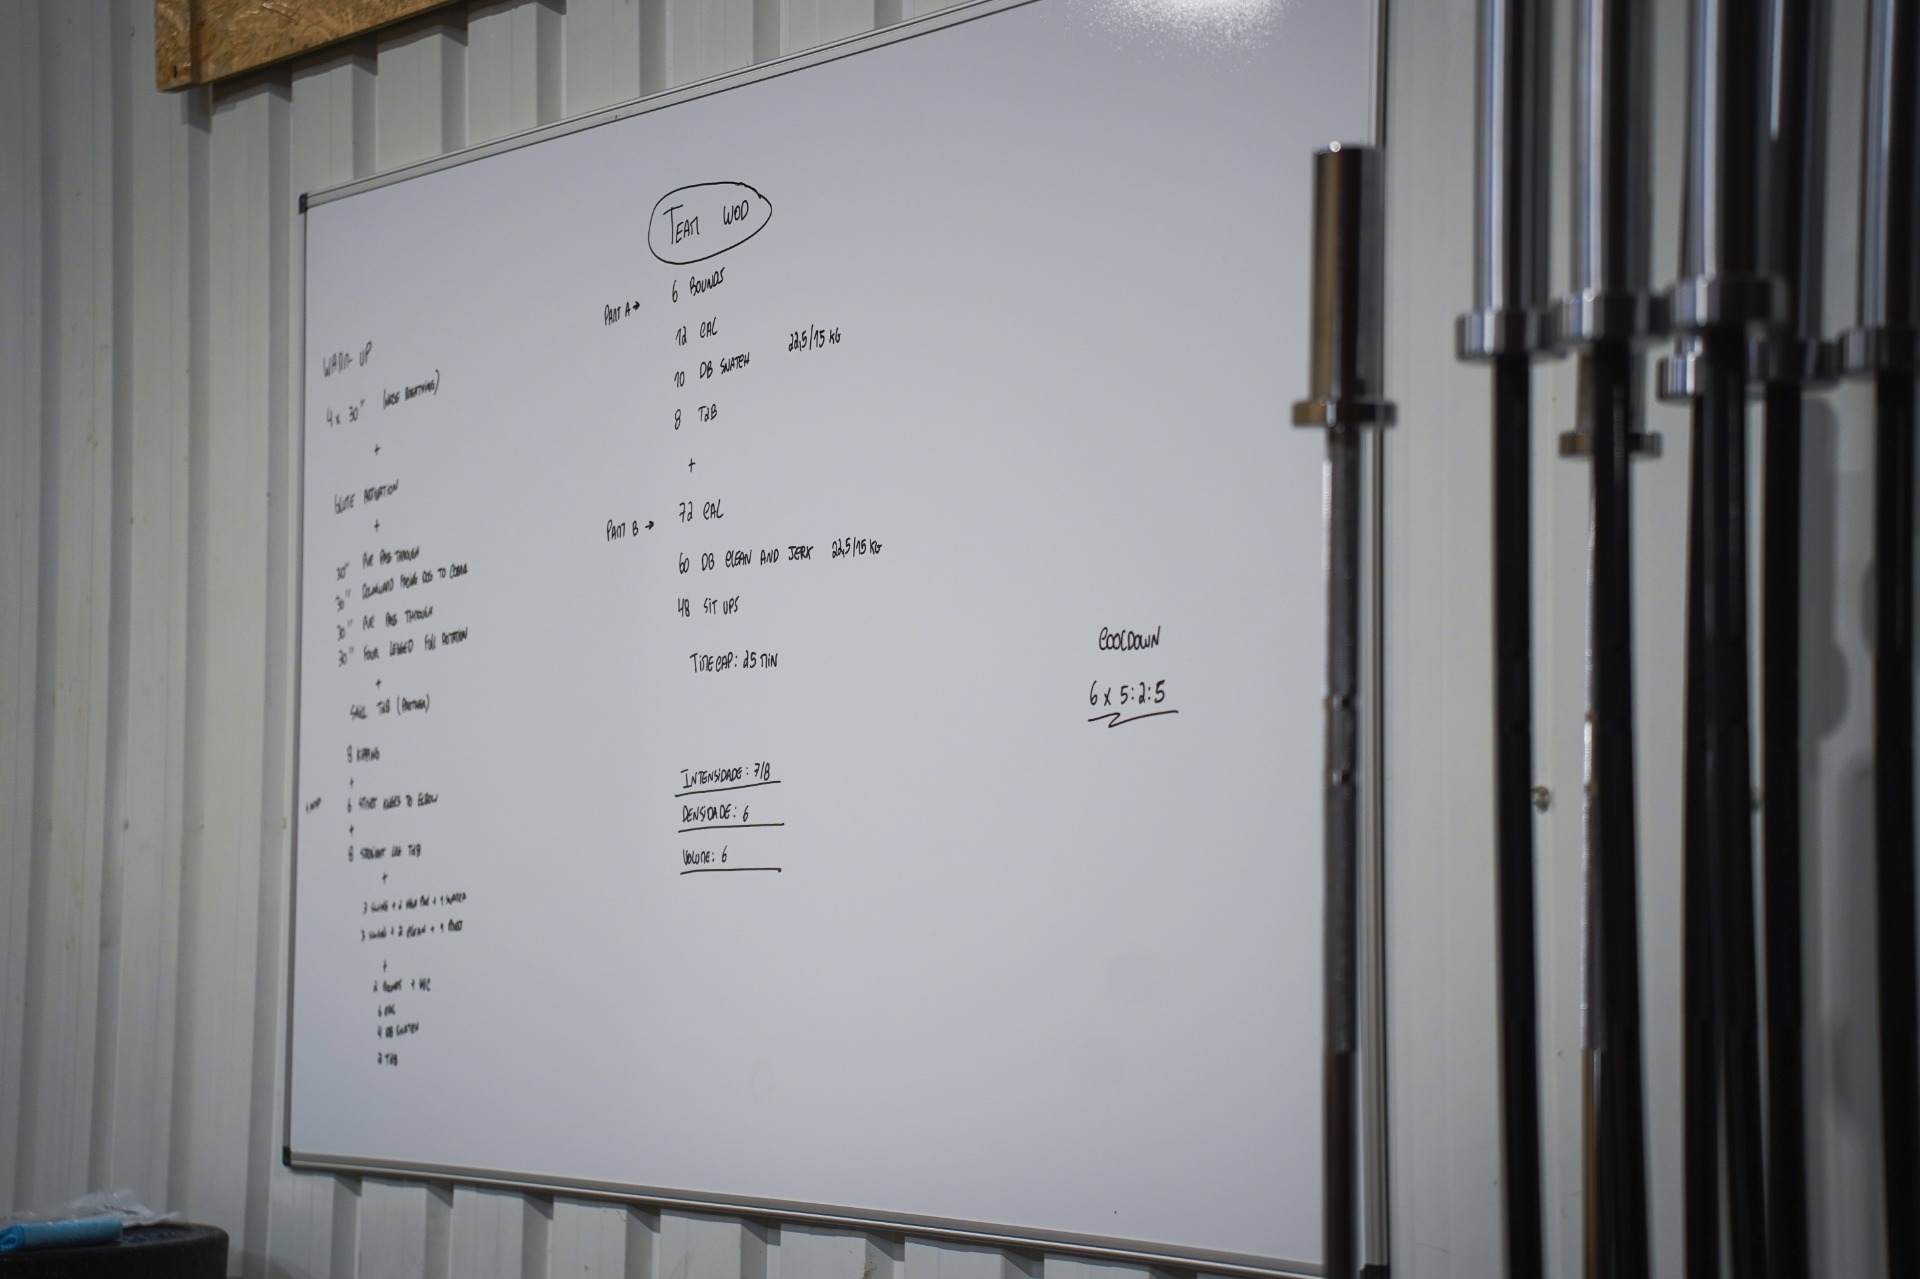 WARM-UP
4 x 30" (NOSE BREATHING)
+
GLUTE ACTIVATION
+
30" PVC PASS THROUGH
30" DOWNWARD FACING DOG TO COBRA
30" PVC PASS THROUGH
30" FOUR LEGGED FULL ROTATION
+
SKILL T2B (PARTNER)
8 KIPPING
+
6 STRICT KNEES TO ELBOW
+
8 STRAIGHT LEG T2B
+
3 SWING + 2 HIGH PULL + 1 SNATCH
3 SWING + 2 CLEAN + 1
+
2 ROUNDS
6 CAL
4 DB SNATCH
2 T2B
TEAM WOD
PART A → 6 ROUNDS
12 CAL
10 DB SNATCH 22,5/15 KG
8 T2B
+
PART B → 72 CAL
60 DB CLEAN AND JERK 22,5/15 KG
48 SIT UPS
TIME CAP: 25 MIN
INTENSIDADE: 7/8
DENSIDADE: 6
VOLUME: 6
COOLDOWN
6 x 5:2:5